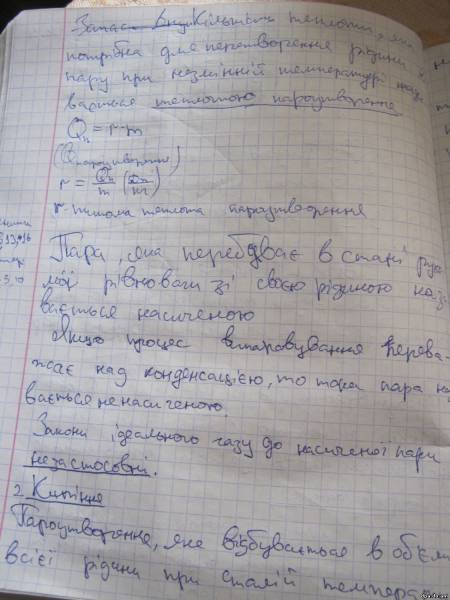 Запас Кількість теплоти, яка
потрібна для перетворення рідини у
пару при незмінній температурі нази
вається теплотою пароутворення
Qп = r·m
(Qпароутворення)
r = Qп/m (Дж/кг)
r - питома теплота пароутворення
§13,
Пара, яка перебуває в стані рухо
мої рівноваги зі своєю рідиною нази
вається насиченою
Якщо процес випаровування перева-
жає над конденсацією, то така пара на
вається ненасиченою.
Закони ідеального газу до насиченої пари
незастосовні.
2. Кипіння
Пароутворення, яке відбувається в об'ємі
всієї рідини при сталій темпера